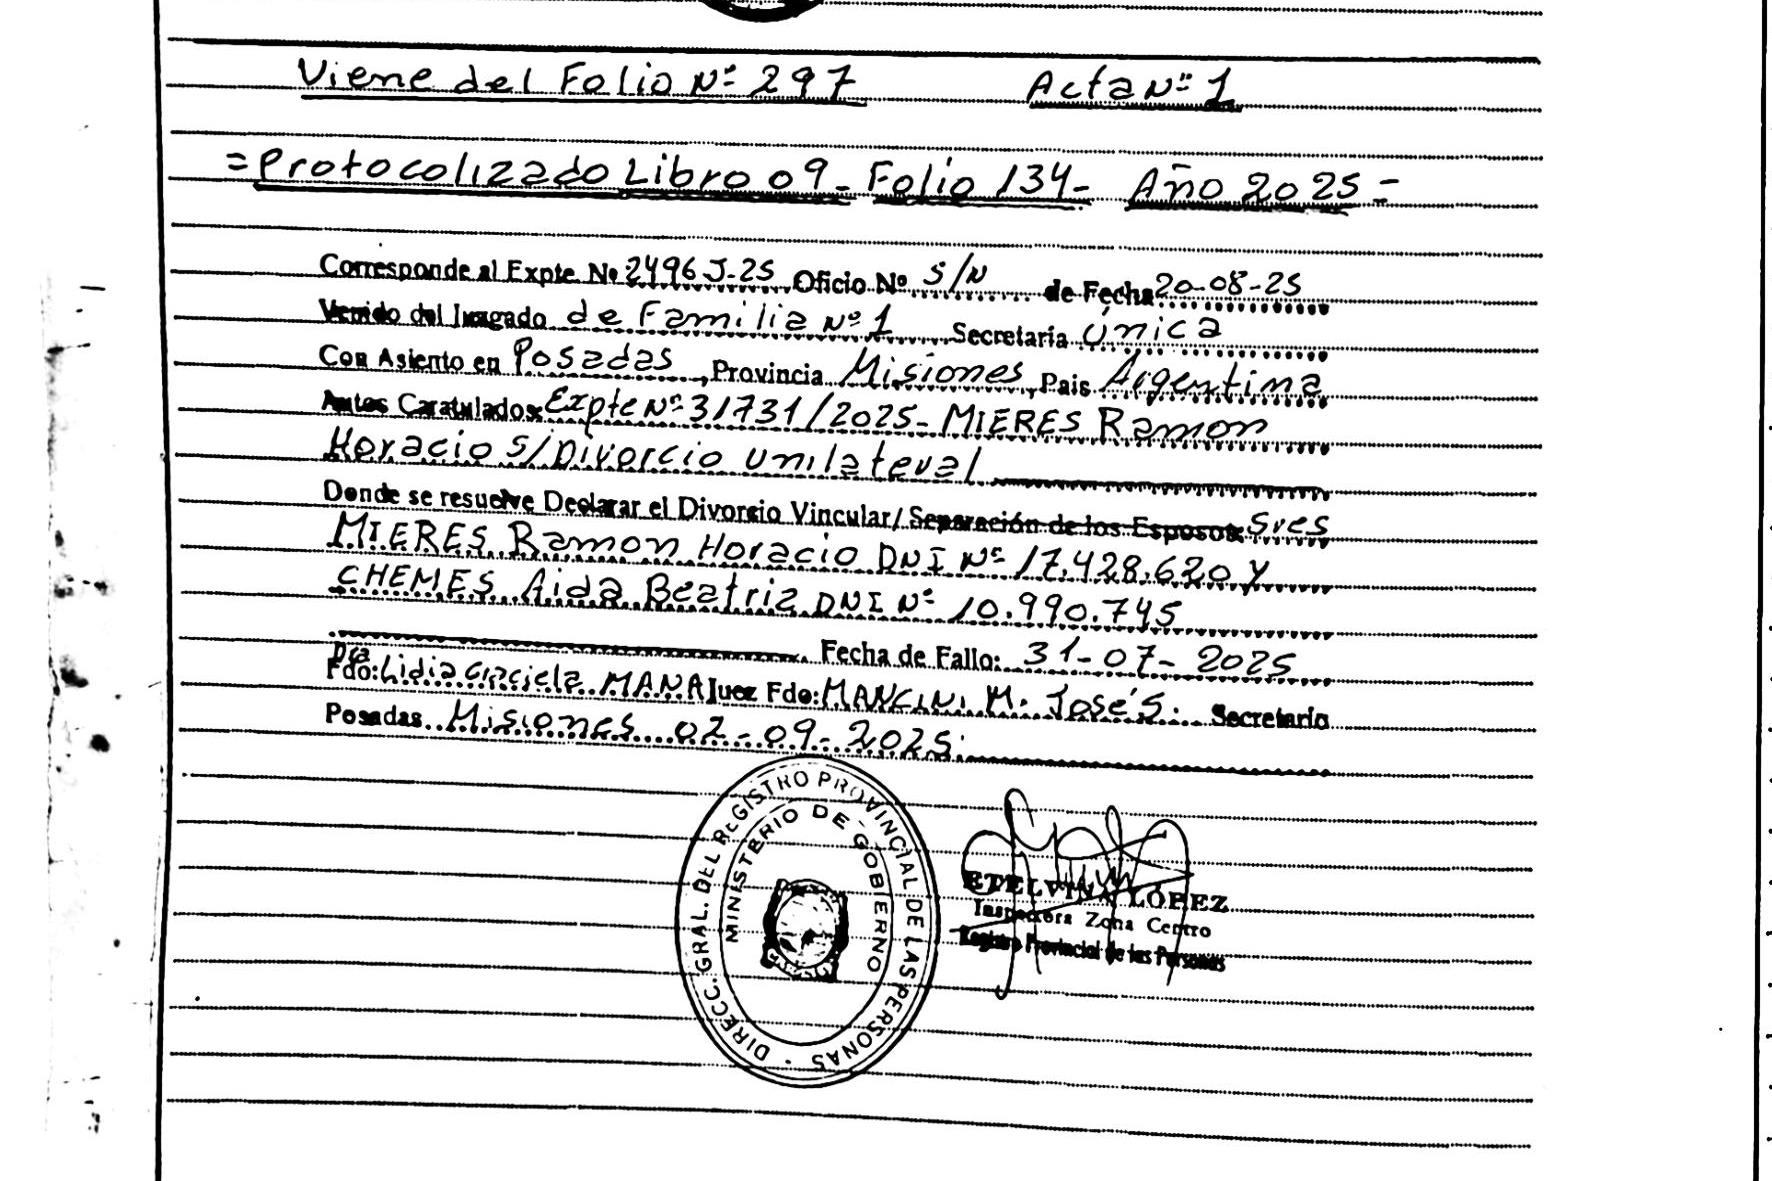 Viene del Folio Nº 297 Acta Nº 1
=Protocolizado Libro 09- Folio 134- Año 2025=
Corresponde al Expte. Nº 2496 J-25 Oficio Nº S/N de Fecha 20-08-25
Venido del Juzgado de Familia Nº 1 Secretaría Única
Con Asiento en Posadas, Provincia Misiones, Pais Argentina
Autos Caratulados: Expte Nº 31731/2025- MIERES Ramon
Horacio S/Divorcio unilateral
Donde se resuelve Declarar el Divorcio Vincular/ Separación de los Esposos: Sres
MIERES Ramon Horacio DNI Nº 17.428.620 y
CHEMES Aida Beatriz DNI Nº 10.990.745
Fecha de Fallo: 31-07-2025
Dra
Fdo: Lidia Graciela MANA Juez Fdo: MANCINI M. José S. Secretario
Posadas Misiones 02-09-2025.
DIRECC. GRAL. DEL REGISTRO PROVINCIAL DE LAS PERSONAS
MINISTERIO DE GOBIERNO
ETELVINA LÓPEZ
Inspectora Zona Centro
Registro Provincial de las Personas